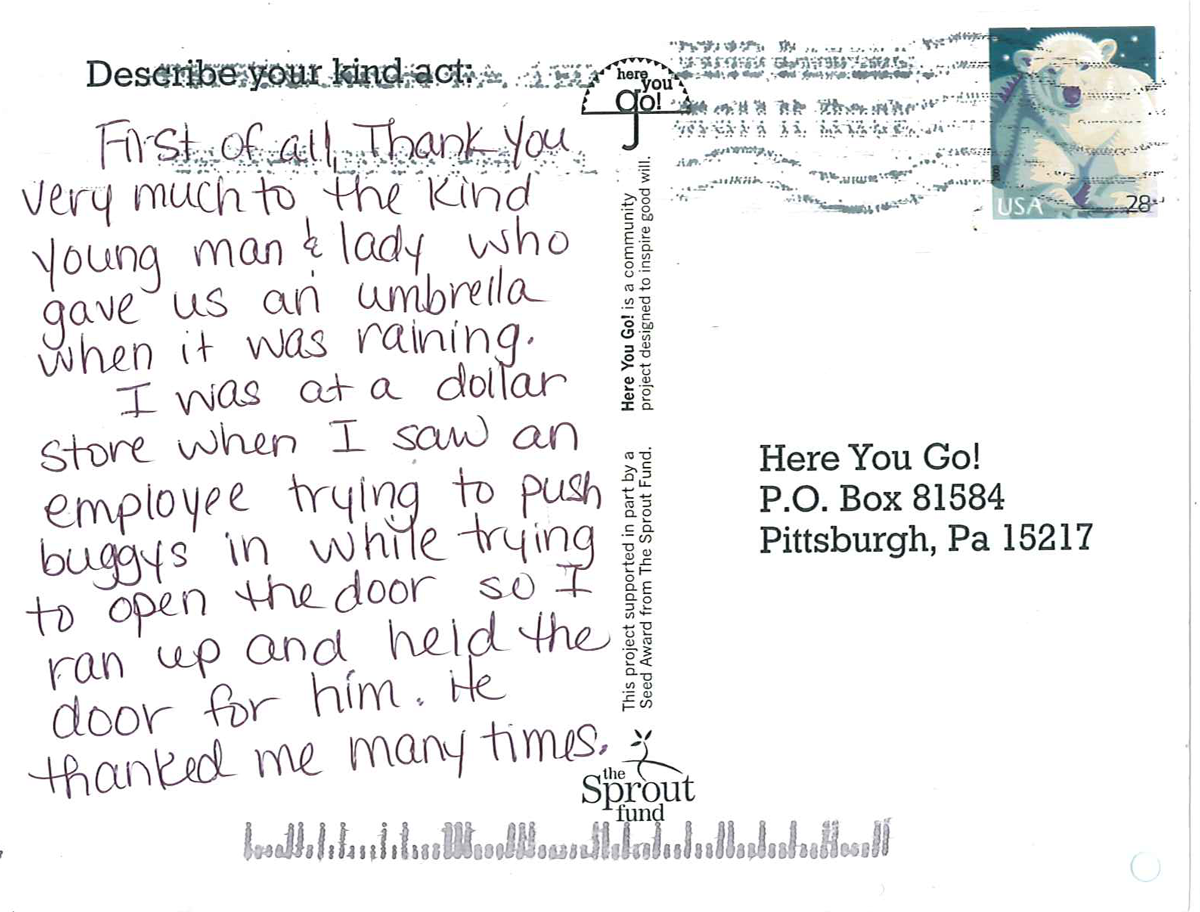 Describe your kind act:
First of all, Thank You
very much to the kind
young man & lady who
gave us an umbrella
when it was raining.
I was at a dollar
store when I saw an
employee trying to push
buggys in while trying
to open the door so I
ran up and held the
door for him. He
thanked me many times.
here
you
go!
Here You Go! is a community
project designed to inspire good will.
This project supported in part by a
Seed Award from The Sprout Fund.
the
Sprout
fund
USA 28
Here You Go!
P.O. Box 81584
Pittsburgh, Pa 15217